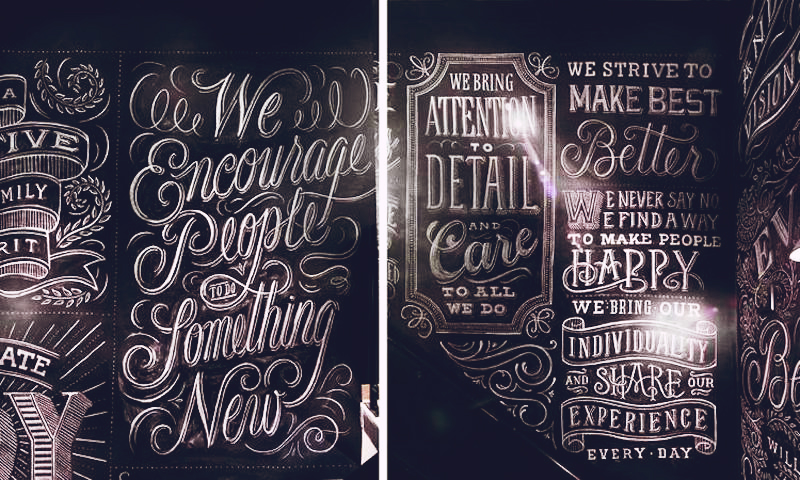 A
IVE
MILY
RIT
ATE
Y
We
Encourage
People
TO DO
Something
New
WE BRING
ATTENTION
TO
DETAIL
AND
Care
TO ALL
WE DO
WE STRIVE TO
MAKE BEST
Better
WE NEVER SAY NO
WE FIND A WAY
TO MAKE PEOPLE
HAPPY
WE·BRING·OUR
INDIVIDUALITY
AND SHARE OUR
EXPERIENCE
EVERY·DAY
VISION
EV
B
WILL